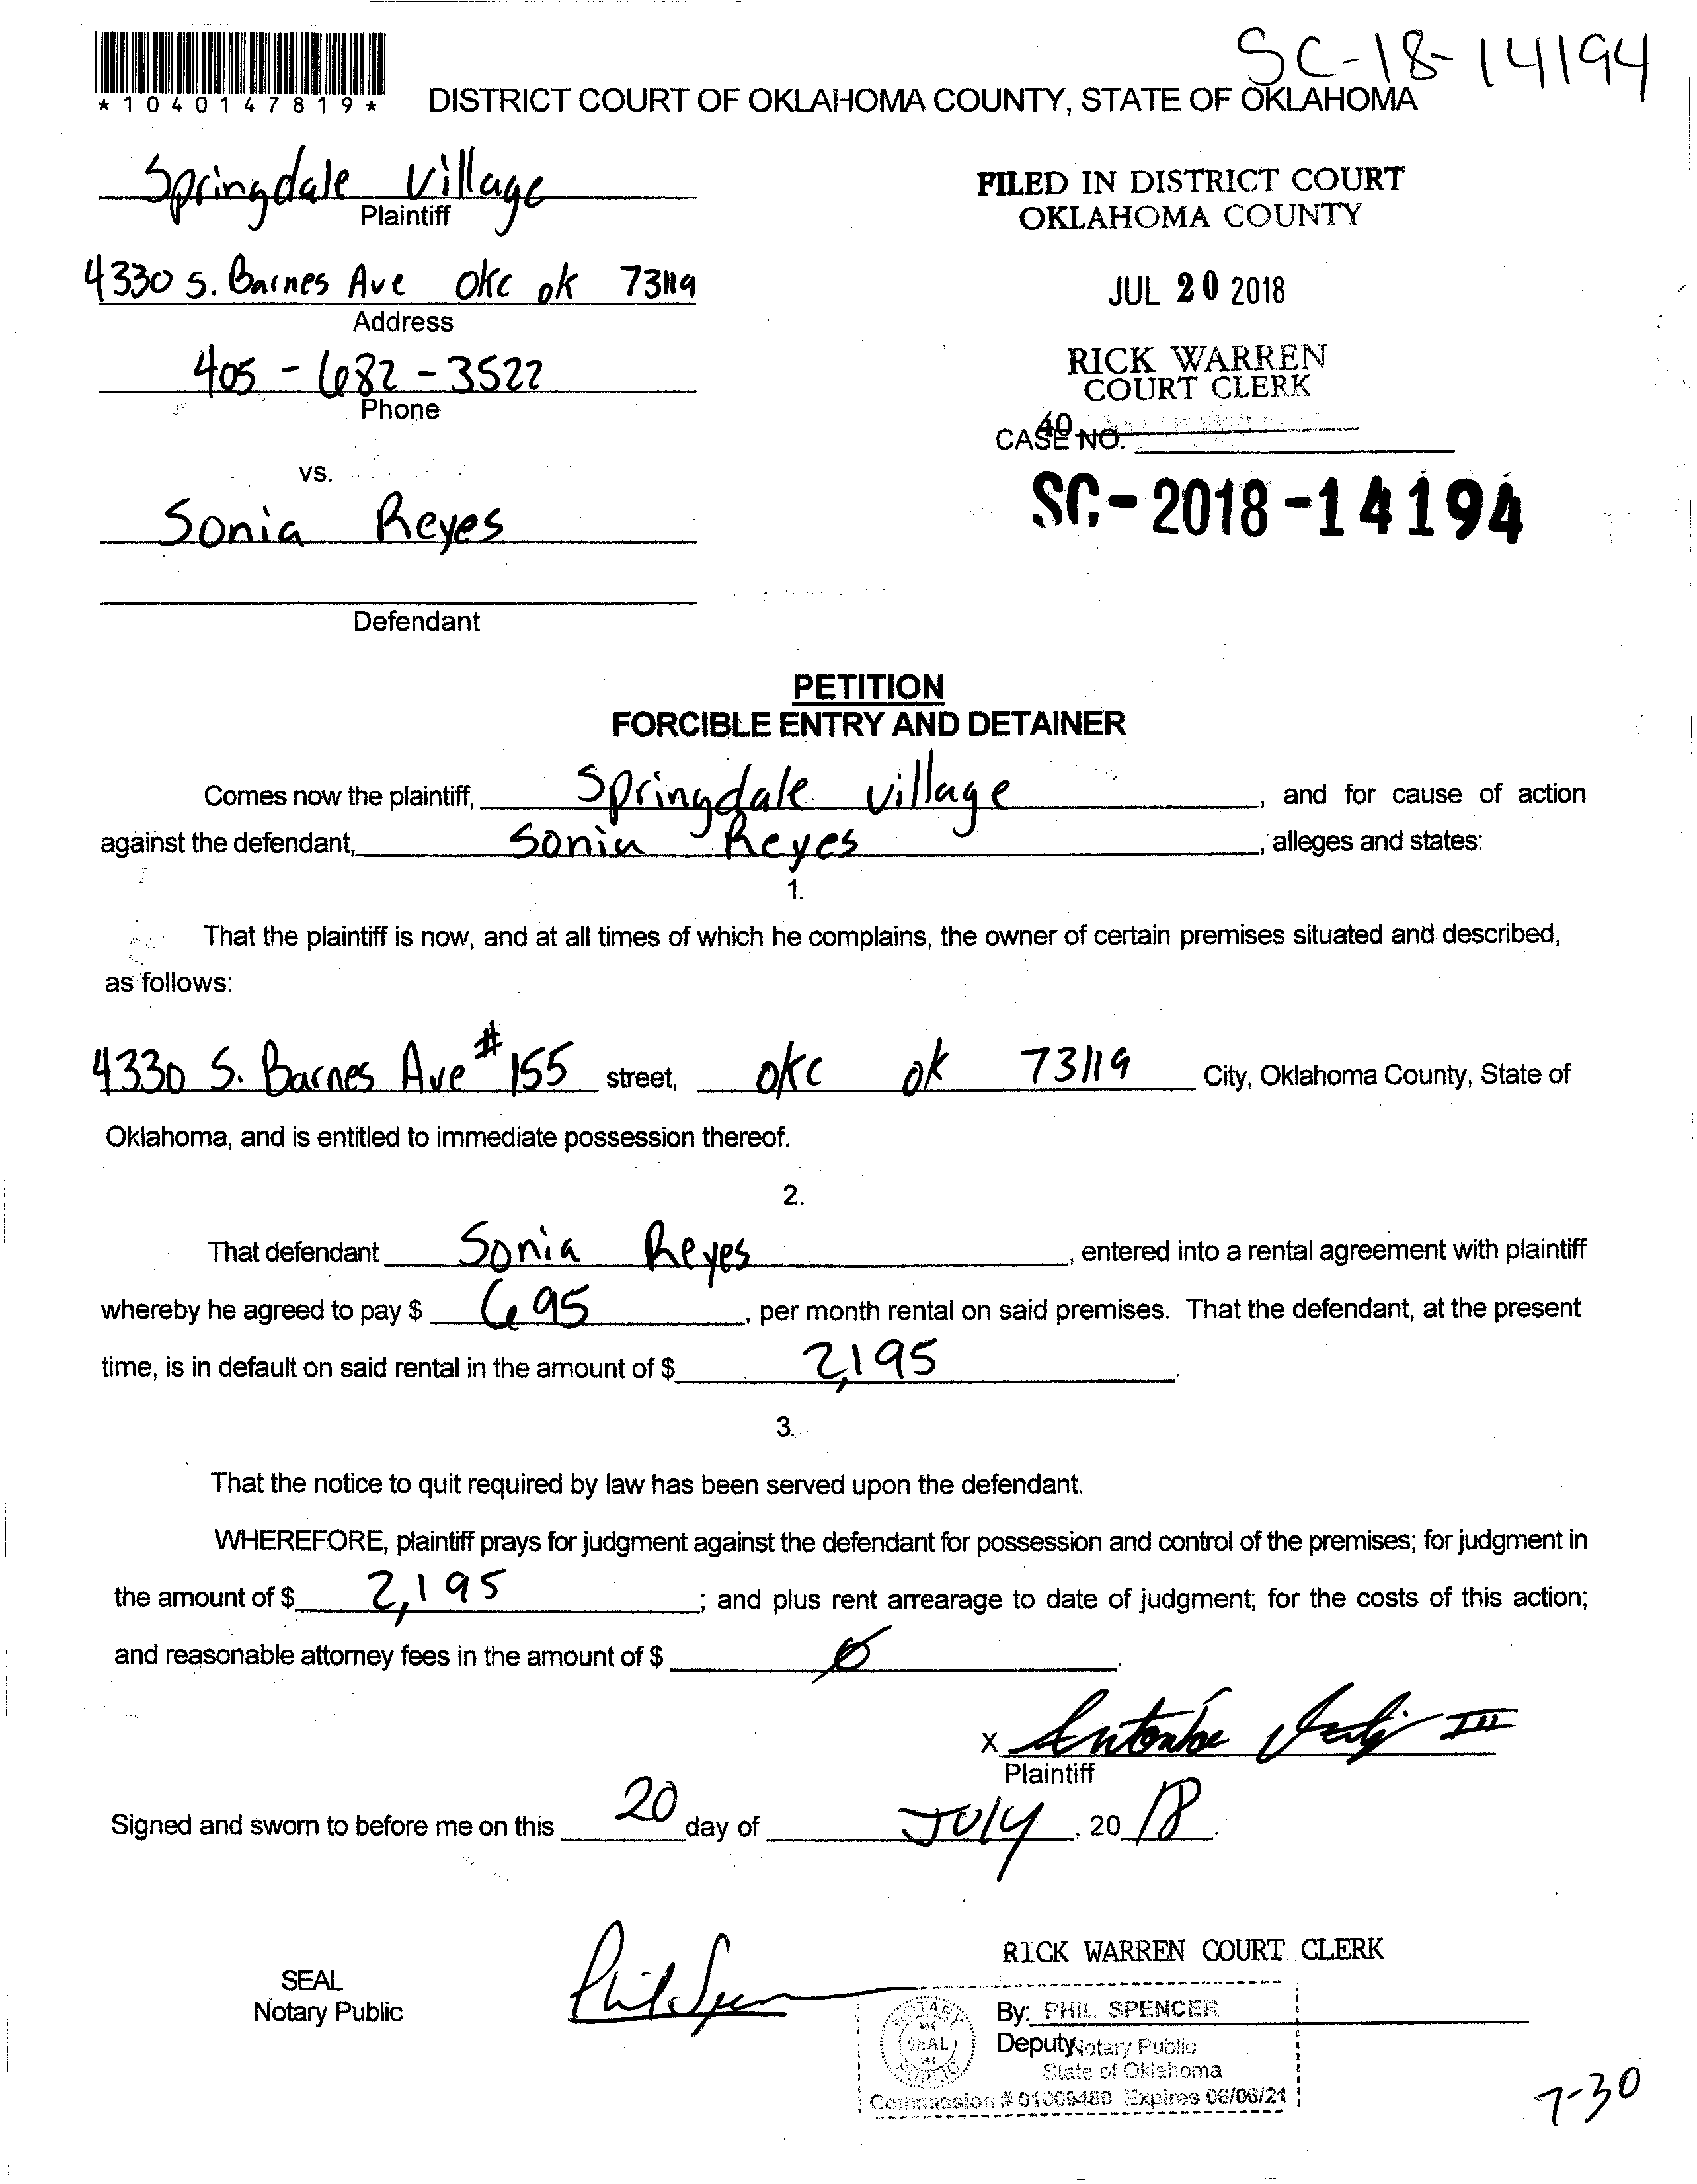 SC-18-14194
*1040147819*
DISTRICT COURT OF OKLAHOMA COUNTY, STATE OF OKLAHOMA
Springdale Village
Plaintiff
FILED IN DISTRICT COURT
OKLAHOMA COUNTY
4330 S. Barnes Ave OKC OK 73119
Address
JUL 20 2018
405-682-3522
Phone
RICK WARREN
COURT CLERK
40
CASE NO.
vs.
SC-2018-14194
Sonia Reyes
Defendant
PETITION
FORCIBLE ENTRY AND DETAINER
Comes now the plaintiff, Springdale village, and for cause of action
against the defendant, Sonia Reyes, alleges and states:
1.
That the plaintiff is now, and at all times of which he complains, the owner of certain premises situated and described,
as follows:
4330 S. Barnes Ave #155 street, OKC OK 73119 City, Oklahoma County, State of
Oklahoma, and is entitled to immediate possession thereof.
2.
That defendant Sonia Reyes, entered into a rental agreement with plaintiff
whereby he agreed to pay $ 695, per month rental on said premises. That the defendant, at the present
time, is in default on said rental in the amount of $ 2,195.
3.
That the notice to quit required by law has been served upon the defendant.
WHEREFORE, plaintiff prays for judgment against the defendant for possession and control of the premises; for judgment in
the amount of $ 2,195; and plus rent arrearage to date of judgment; for the costs of this action;
and reasonable attorney fees in the amount of $ 0.
X III
Plaintiff
Signed and sworn to before me on this 20 day of July, 20 18.
RICK WARREN COURT CLERK
SEAL
Notary Public
Phil Spencer
NOTARY SEAL PUBLIC
By: PHIL SPENCER
Deputy Notary Public
State of Oklahoma
Commission # 01009480 Expires 06/06/21
7-30